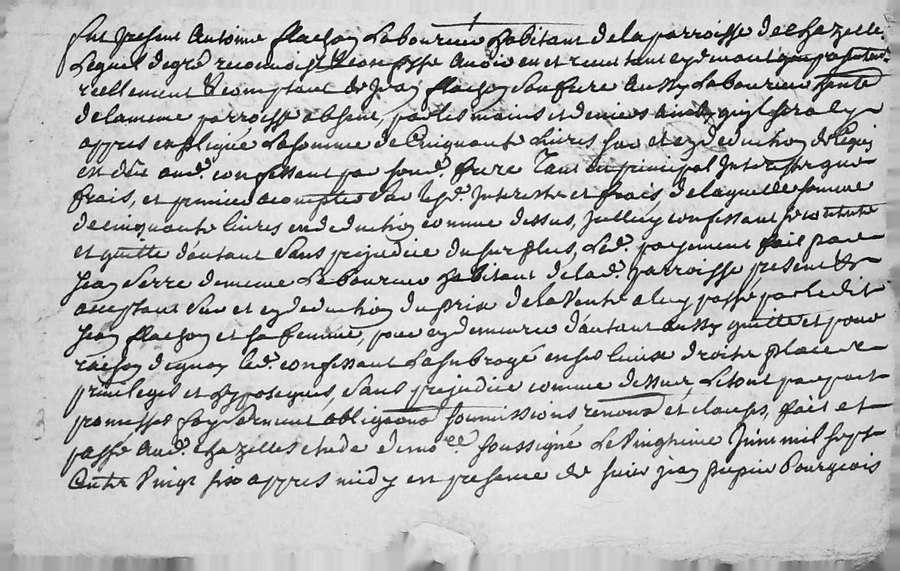 fut present Antoine flachon Laboureur habitant de la parroisse de chazelle
Lequel de gré reconnoist & confesse Avoir eu et receu tant cydevant que presentement
reellement & comptant de Jean flachon son frere Aussy Laboureur
de la meme parroisse absent, par les mains et deniers ainsy quil sera cy
appres expliqué La somme de Cinquante Livres sur et en deduction de
en deü aud. confessant par sond. frere Tant en principal Interest que
frais, et premier acomptes sur lesd. Interests et frais de laquelle somme
de cinquante livres en deduction comme dessus, Jcelluy confessant se contente
et quitte d'autant sans prejudice du surplus, Led. payement fait par
Jean Serre de meme Laboureur habitant de lad. parroisse present &
acceptant sur et en deduction du prix de la Vente a luy passé par ledit
Jean flachon et sa femme, pour en demeurer d'autant aussy quitte et pour
raison de quoy led. confessant La subrogé en ses lieux droits place &
privileges et hypoteques, sans prejudice comme dessus, Le tout par pact
promesses serment obligeons soumissions renons et clauses, fait et
passé aud. chazelles etude du no.re soussigné Le Vingtieme Juin mil sept
Cents Vingt six appres midy en presence de sieur Jean pupier Bourgeois